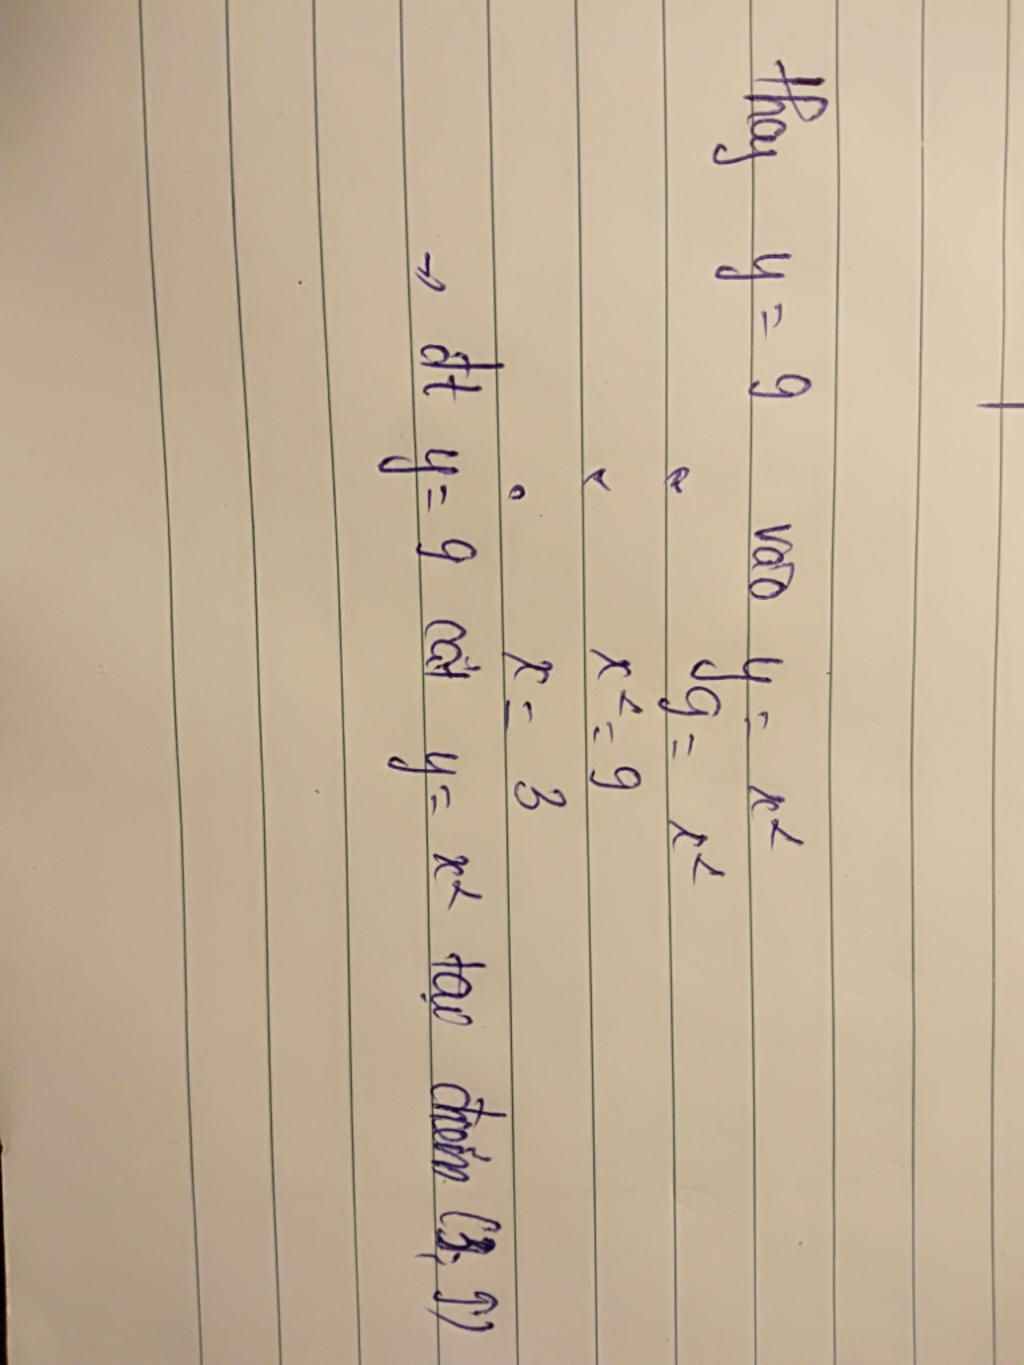 Thay y = 9 vào y = x²
9 = x²
x² = 9
x = 3
→ đt y = 9 cắt y = x² tại điểm (3; 9)